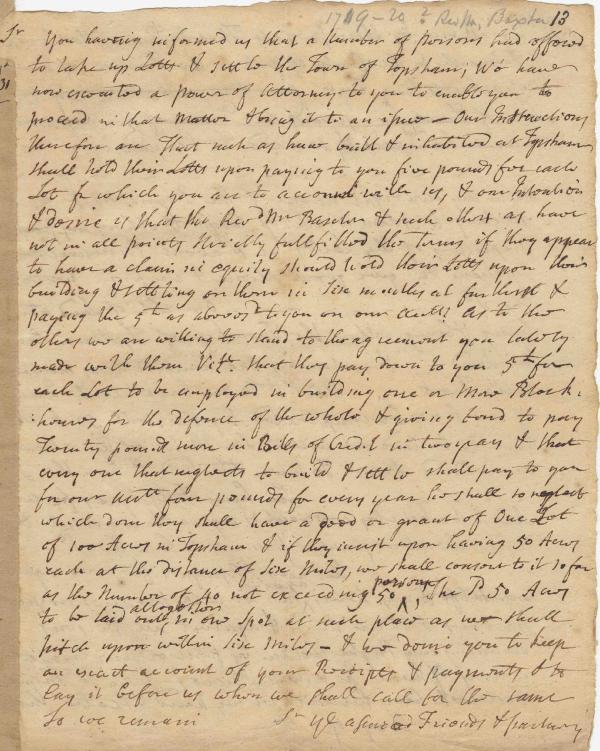 1719-20 ? Rev Mr Baxter 13
Sr
31
You having informed us that a number of persons had offered
to take up Lotts & settle the Town of Topsham; We have
now executed a power of Attorney to you to enable you to
proceed in that Matter & bring it to an issue - Our Instructions
therefore are That such as have built & inhabited at Topsham
shall hold their Lotts upon paying to you five pounds for each
Lot for which you are to account with us, & our Intention
& desire is that the Revd Mr Baxter & such others as have
not in all points strictly fullfilled the terms if they appear
to have a claim in equity should hold their Lotts upon their
building & settling on them in six months at furthest &
paying the 5ll as abovesd to you on our Acctt. As to the
others we are willing to stand to the agreement you lately
made with them Vizt. that they pay down to you 5ll for
each Lot to be employed in building one or More Block
houses for the defence of the whole & giving bond to pay
Twenty pounds more in Bills of Credit in two years & that
every one that neglects to build & settle shall pay to you
for our acctt four pounds for every year he shall so neglect
which done they shall have a deed or grant of One Lot
of 100 Acres in Topsham & if they insist upon having 50 Acres
each at the distance of Six Miles, we shall consent to it so far
as the Number of 40 not exceeding 50 persons, The sd 50 Acres
to be laid out altogether in one Spot at such place as we shall
pitch upon within Six Miles - & we desire you to keep
an exact account of your Receipts & payments & to
lay it before us when we shall call for the same
So we remain Sr yr assured Friends &